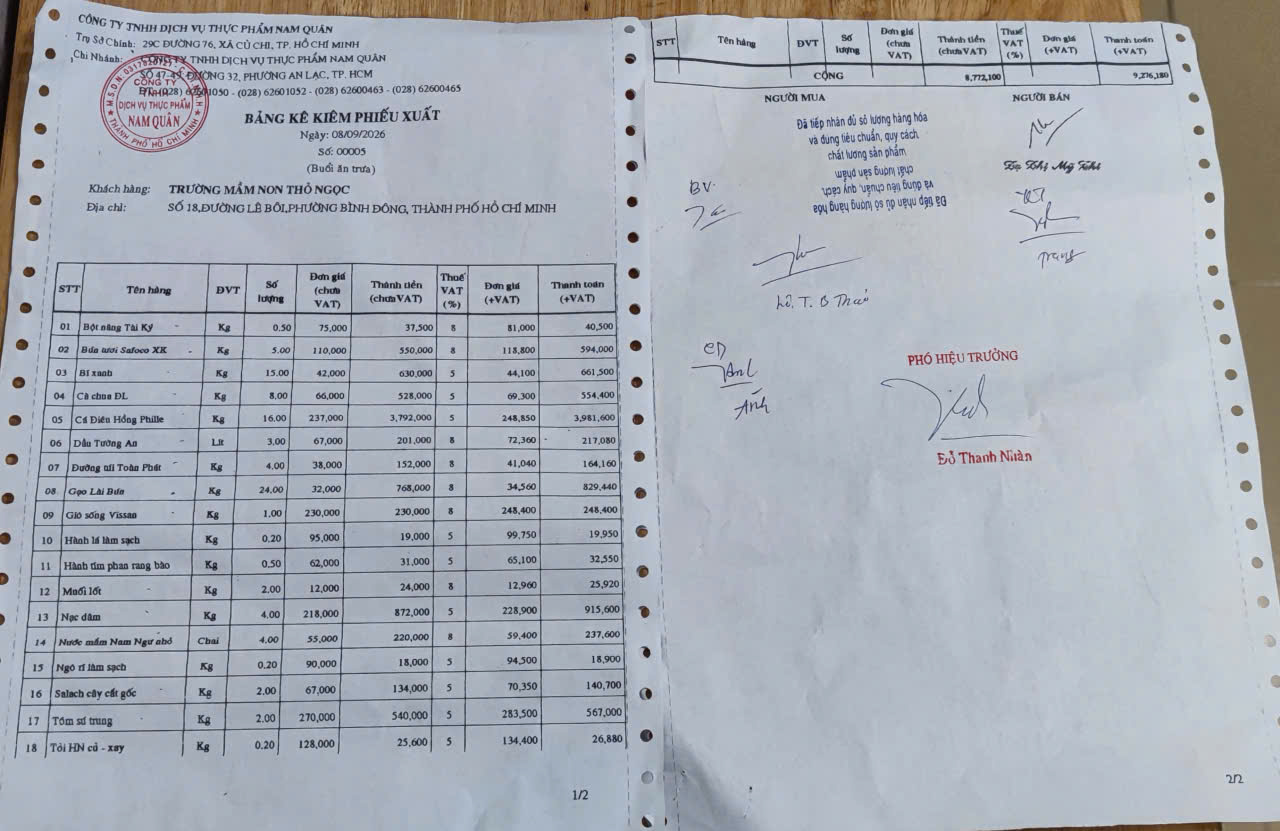 CÔNG TY TNHH DỊCH VỤ THỰC PHẨM NAM QUÂN
Trụ Sở Chính: 29C ĐƯỜNG 76, XÃ CỦ CHI, TP. HỒ CHÍ MINH
Chi Nhánh: CÔNG TY TNHH DỊCH VỤ THỰC PHẨM NAM QUÂN
SỐ 47-49, ĐƯỜNG 32, PHƯỜNG AN LẠC, TP. HCM
ĐT: (028) 62601050 - (028) 62601052 - (028) 62600463 - (028) 62600465
CÔNG TY
TNHH
DỊCH VỤ THỰC PHẨM
NAM QUÂN
THÀNH PHỐ HỒ CHÍ MINH
BẢNG KÊ KIÊM PHIẾU XUẤT
Ngày: 08/09/2026
Số: 00005
(Buổi ăn trưa)
Khách hàng: TRƯỜNG MẦM NON THỎ NGỌC
Địa chỉ: SỐ 18,ĐƯỜNG LÊ BÔI,PHƯỜNG BÌNH ĐÔNG, THÀNH PHỐ HỒ CHÍ MINH
STT Tên hàng ĐVT Số lượng Đơn giá (chưa VAT) Thành tiền (chưa VAT) Thuế VAT (%) Đơn giá (+VAT) Thanh toán (+VAT)
01 Bột năng Tài Ký Kg 0.50 75,000 37,500 8 81,000 40,500
02 Bún tươi Safoco XK Kg 5.00 110,000 550,000 8 118,800 594,000
03 Bí xanh Kg 15.00 42,000 630,000 5 44,100 661,500
04 Cà chua ĐL Kg 8.00 66,000 528,000 5 69,300 554,400
05 Cá Điêu Hồng Phille Kg 16.00 237,000 3,792,000 5 248,850 3,981,600
06 Dầu Tường An Lít 3.00 67,000 201,000 8 72,360 217,080
07 Đường túi Toàn Phát Kg 4.00 38,000 152,000 8 41,040 164,160
08 Gạo Lài Bún Kg 24.00 32,000 768,000 8 34,560 829,440
09 Giò sống Vissan Kg 1.00 230,000 230,000 8 248,400 248,400
10 Hành lá làm sạch Kg 0.20 95,000 19,000 5 99,750 19,950
11 Hành tím phan rang bào Kg 0.50 62,000 31,000 5 65,100 32,550
12 Muối Iốt Kg 2.00 12,000 24,000 8 12,960 25,920
13 Nạc dăm Kg 4.00 218,000 872,000 5 228,900 915,600
14 Nước mắm Nam Ngư nhỏ Chai 4.00 55,000 220,000 8 59,400 237,600
15 Ngò rí làm sạch Kg 0.20 90,000 18,000 5 94,500 18,900
16 Salach cây cắt gốc Kg 2.00 67,000 134,000 5 70,350 140,700
17 Tôm sú trung Kg 2.00 270,000 540,000 5 283,500 567,000
18 Tỏi HN củ - xay Kg 0.20 128,000 25,600 5 134,400 26,880
1/2
STT Tên hàng ĐVT Số lượng Đơn giá (chưa VAT) Thành tiền (chưa VAT) Thuế VAT (%) Đơn giá (+VAT) Thanh toán (+VAT)
CỘNG 8,772,100 9,276,180
NGƯỜI MUA NGƯỜI BÁN
Đã tiếp nhận đủ số lượng hàng hóa
và đúng tiêu chuẩn, quy cách
chất lượng sản phẩm
Đã tiếp nhận đủ số lượng hàng hóa
và đúng tiêu chuẩn, quy cách
chất lượng sản phẩm
BV.
Trang
Lê. T. B Thảo
CD
Anh
Ánh
PHÓ HIỆU TRƯỞNG
Đỗ Thanh Nhàn
2/2